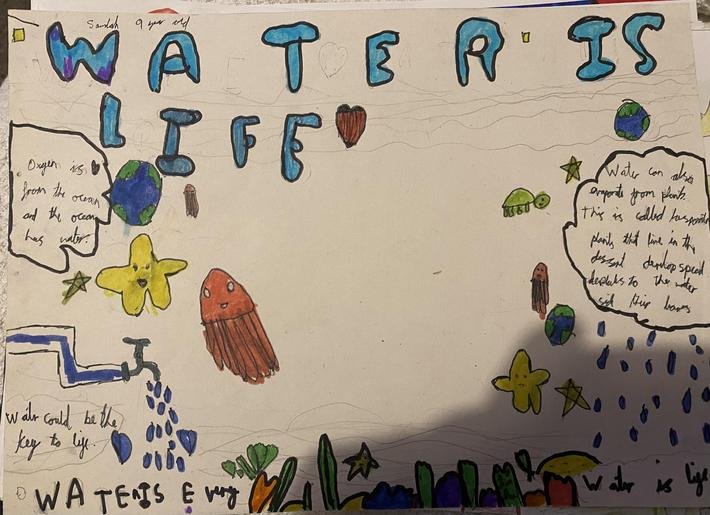 9 year old
WATER IS
LIFE
Oxgen is
from the ocean
and the ocean
has water.
Water can also
evaporate from plants.
This is called
plants that live in the
develop
to the water
Water could be the
key to life.
WATER IS Every
Water is life